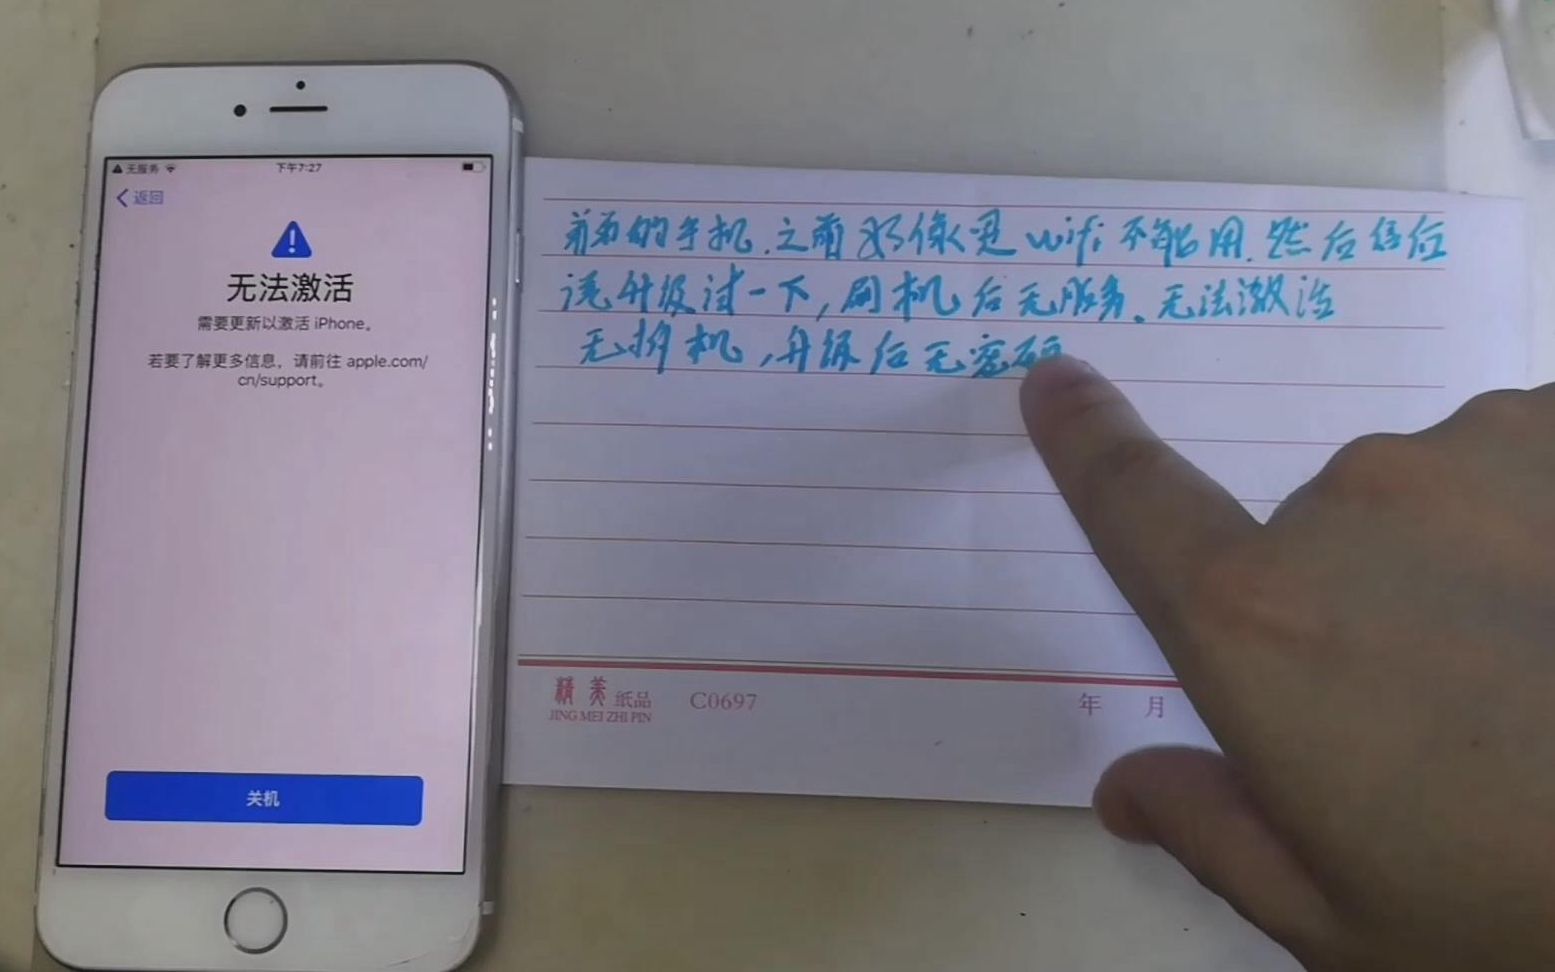 无服务
下午7:27
返回
无法激活
需要更新以激活 iPhone。
若要了解更多信息，请前往 apple.com/
cn/support。
关机
的手机.之前好像是wifi不能用.然后
说升级试一下,刷机后无服务、无法激活
无拆机,升级后无密码
精美纸品
JING MEI ZHI PIN
C0697
年 月